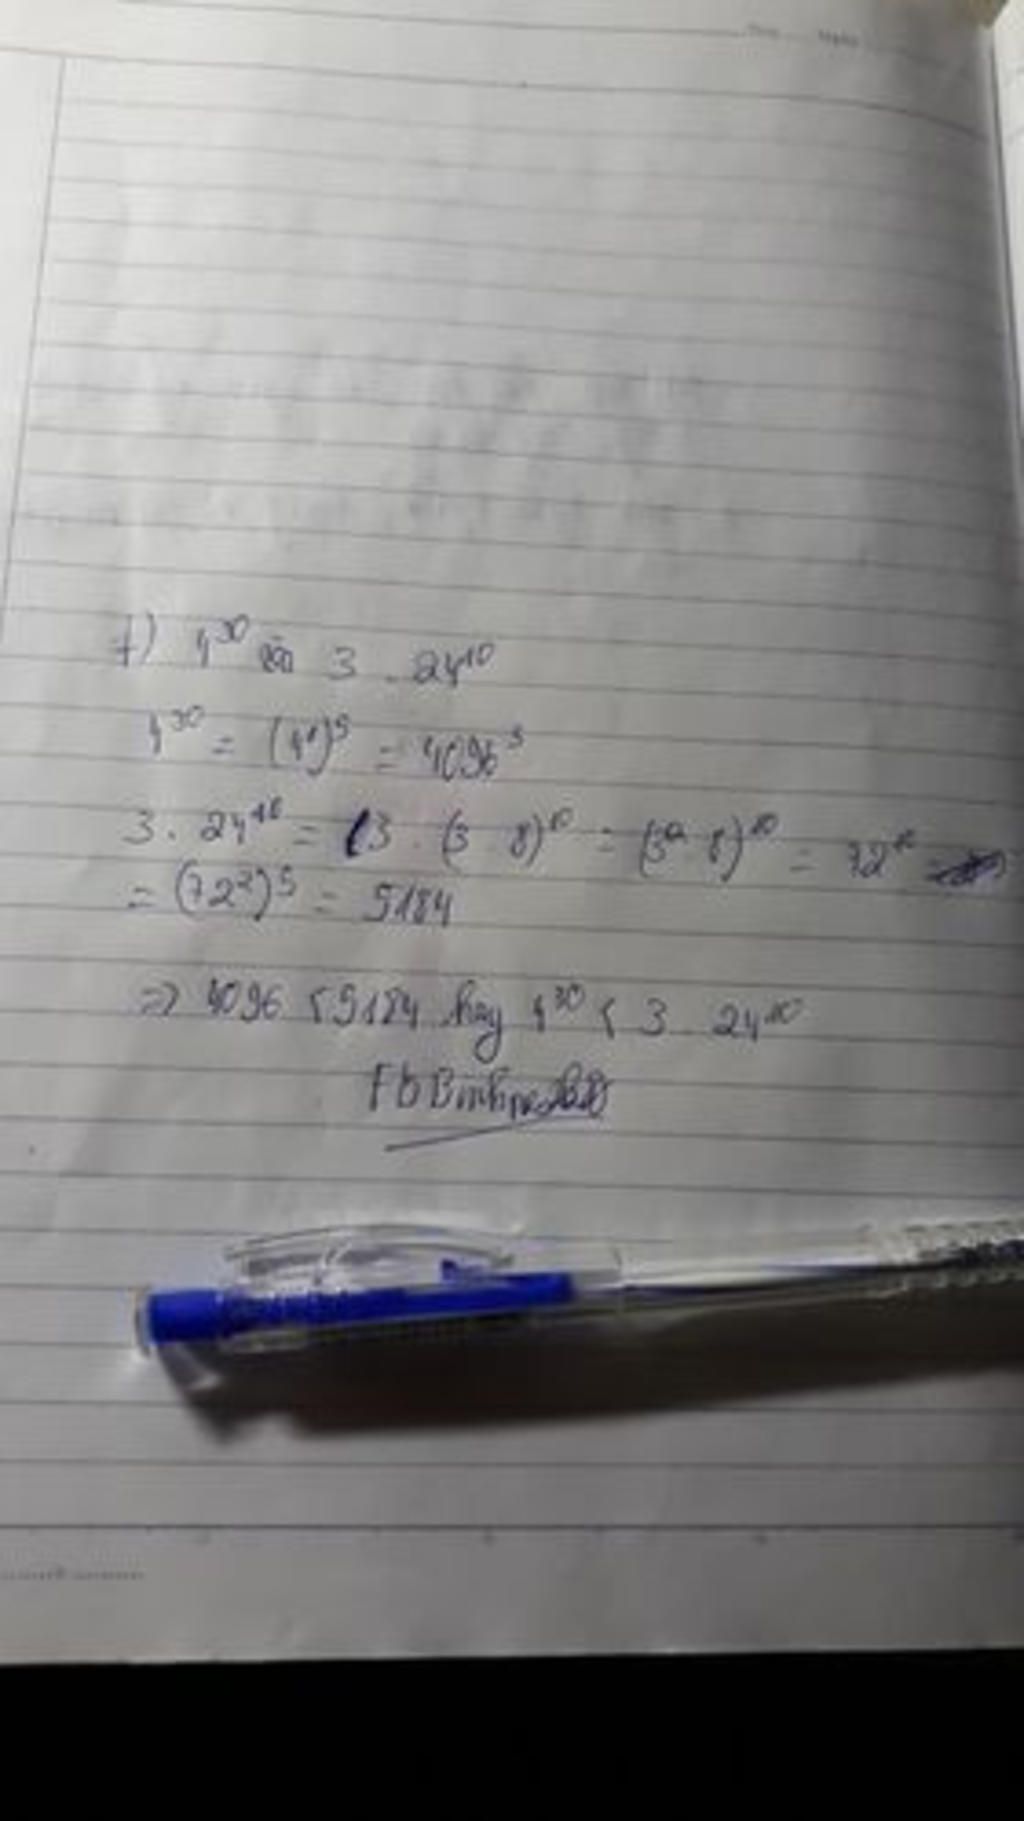 f) 4³⁰ và 3 . 24¹⁰
4³⁰ = (4⁶)⁵ = 4096⁵
3 . 24¹⁰ = 3 . (3 . 8)¹⁰ = (3² . 8)¹⁰ = 72¹⁰
= (72²)⁵ = 5184
=> 4096 < 5184 hay 4³⁰ < 3 . 24¹⁰